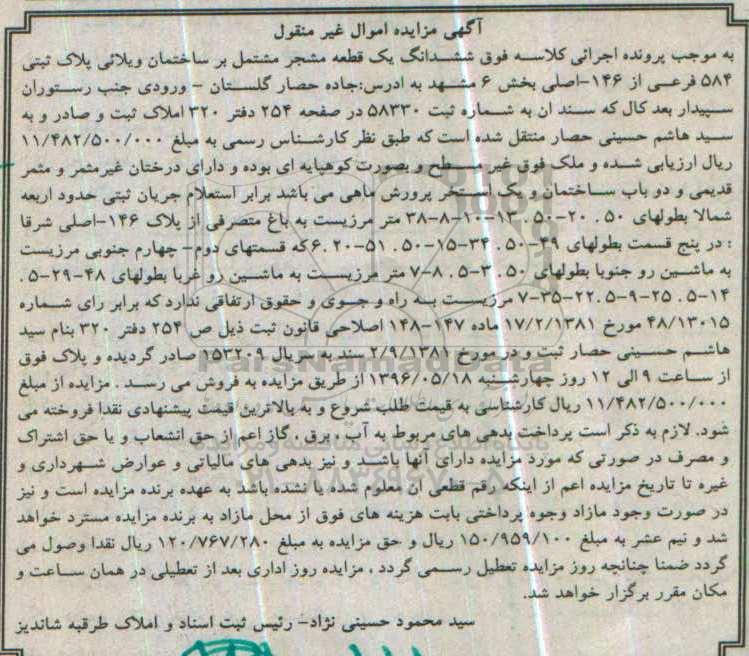 آگهی مزایده اموال غیر منقول
به موجب پرونده اجرائی کلاسه فوق ششدانگ یک قطعه مشجر مشتمل بر ساختمان ویلائی پلاک ثبتی
۵۸۴ فرعی از ۱۴۶-اصلی بخش ۶ مشهد به ادرس:جاده حصار گلستان - ورودی جنب رستوران
سپیدار بعد کال که سند ان به شماره ثبت ۵۸۳۳۰ در صفحه ۲۵۴ دفتر ۳۲۰ املاک ثبت و صادر و به
سید هاشم حسینی حصار منتقل شده است که طبق نظر کارشناس رسمی به مبلغ ۱۱/۴۸۲/۵۰۰/۰۰۰
ریال ارزیابی شده و ملک فوق غیر مسطح و بصورت کوهپایه ای بوده و دارای درختان غیرمثمر و مثمر
قدیمی و دو باب ساختمان و یک استخر پرورش ماهی می باشد برابر استعلام جریان ثبتی حدود اربعه
شمالا بطولهای ۵۰ . ۲۰-۵۰ . ۱۳-۱۰-۸-۳۸ متر مرزیست به باغ متصرفی از پلاک ۱۴۶-اصلی شرقا
: در پنج قسمت بطولهای ۴۹-۵۰ . ۳۴-۱۵-۵۰ . ۵۱-۲۰ .۶که قسمتهای دوم- چهارم جنوبی مرزیست
به ماشین رو جنوبا بطولهای ۵۰ . ۳-۵ . ۸-۷ متر مرزیست به ماشین رو غربا بطولهای ۴۸-۲۹-۵ .
۱۴-۵ . ۲۵-۹-۵ .۲۲-۳۵-۷ مرزیست به راه و جوی و حقوق ارتفاقی ندارد که برابر رای شماره
۴۸/۱۳۰۱۵ مورخ ۱۷/۲/۱۳۸۱ ماده ۱۴۷-۱۴۸ اصلاحی قانون ثبت ذیل ص ۲۵۴ دفتر ۳۲۰ بنام سید
هاشم حسینی حصار ثبت و در مورخ ۲/۹/۱۳۸۱ سند به سریال ۱۵۳۲۰۹ صادر گردیده و پلاک فوق
از ساعت ۹ الی ۱۲ روز چهارشنبه ۱۳۹۶/۰۵/۱۸ از طریق مزایده به فروش می رسد . مزایده از مبلغ
۱۱/۴۸۲/۵۰۰/۰۰۰ ریال کارشناسی به قیمت طلب شروع و به بالاترین قیمت پیشنهادی نقدا فروخته می
شود. لازم به ذکر است پرداخت بدهی های مربوط به آب ، برق ، گاز اعم از حق انشعاب و یا حق اشتراک
و مصرف در صورتی که مورد مزایده دارای آنها باشد و نیز بدهی های مالیاتی و عوارض شهرداری و
غیره تا تاریخ مزایده اعم از اینکه رقم قطعی آن معلوم شده یا نشده باشد به عهده برنده مزایده است و نیز
در صورت وجود مازاد وجوه پرداختی بابت هزینه های فوق از محل مازاد به برنده مزایده مسترد خواهد
شد و نیم عشر به مبلغ ۱۵۰/۹۵۹/۱۰۰ ریال و حق مزایده به مبلغ ۱۲۰/۷۶۷/۲۸۰ ریال نقدا وصول می
گردد ضمنا چنانچه روز مزایده تعطیل رسمی گردد ، مزایده روز اداری بعد از تعطیلی در همان ساعت و
مکان مقرر برگزار خواهد شد.
سید محمود حسینی نژاد- رئیس ثبت اسناد و املاک طرقبه شاندیز
ParsNamadData